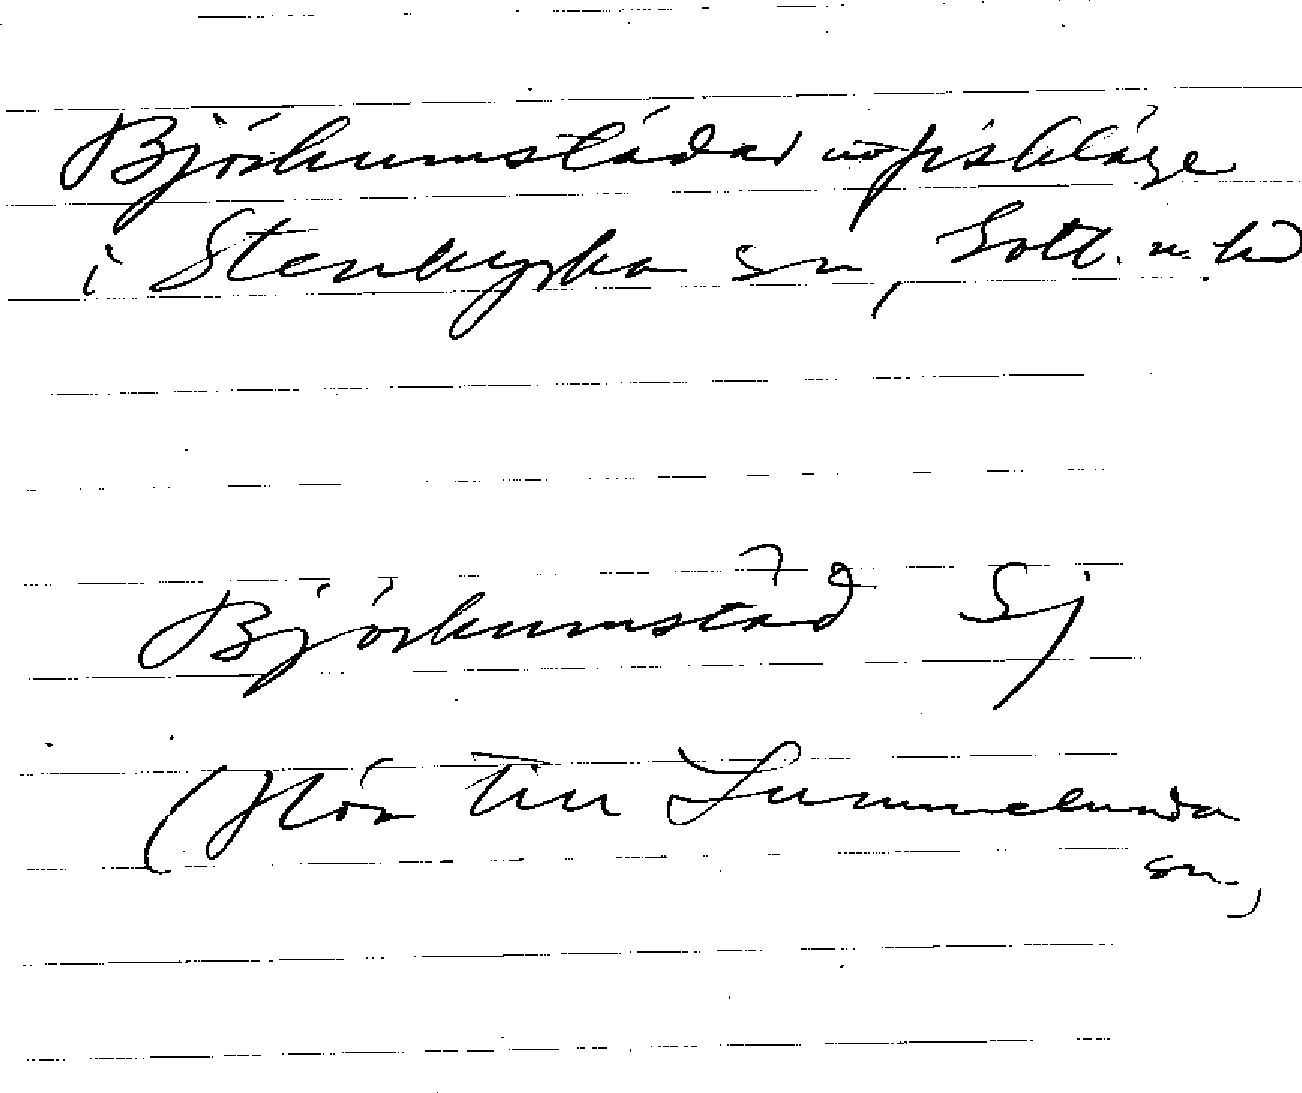 Björkumstädar u fiskläge
i Stenkyrka sn, Gotl. n. hd
Björkumstäd Sj
(Hör till Lummelunda
sn.)